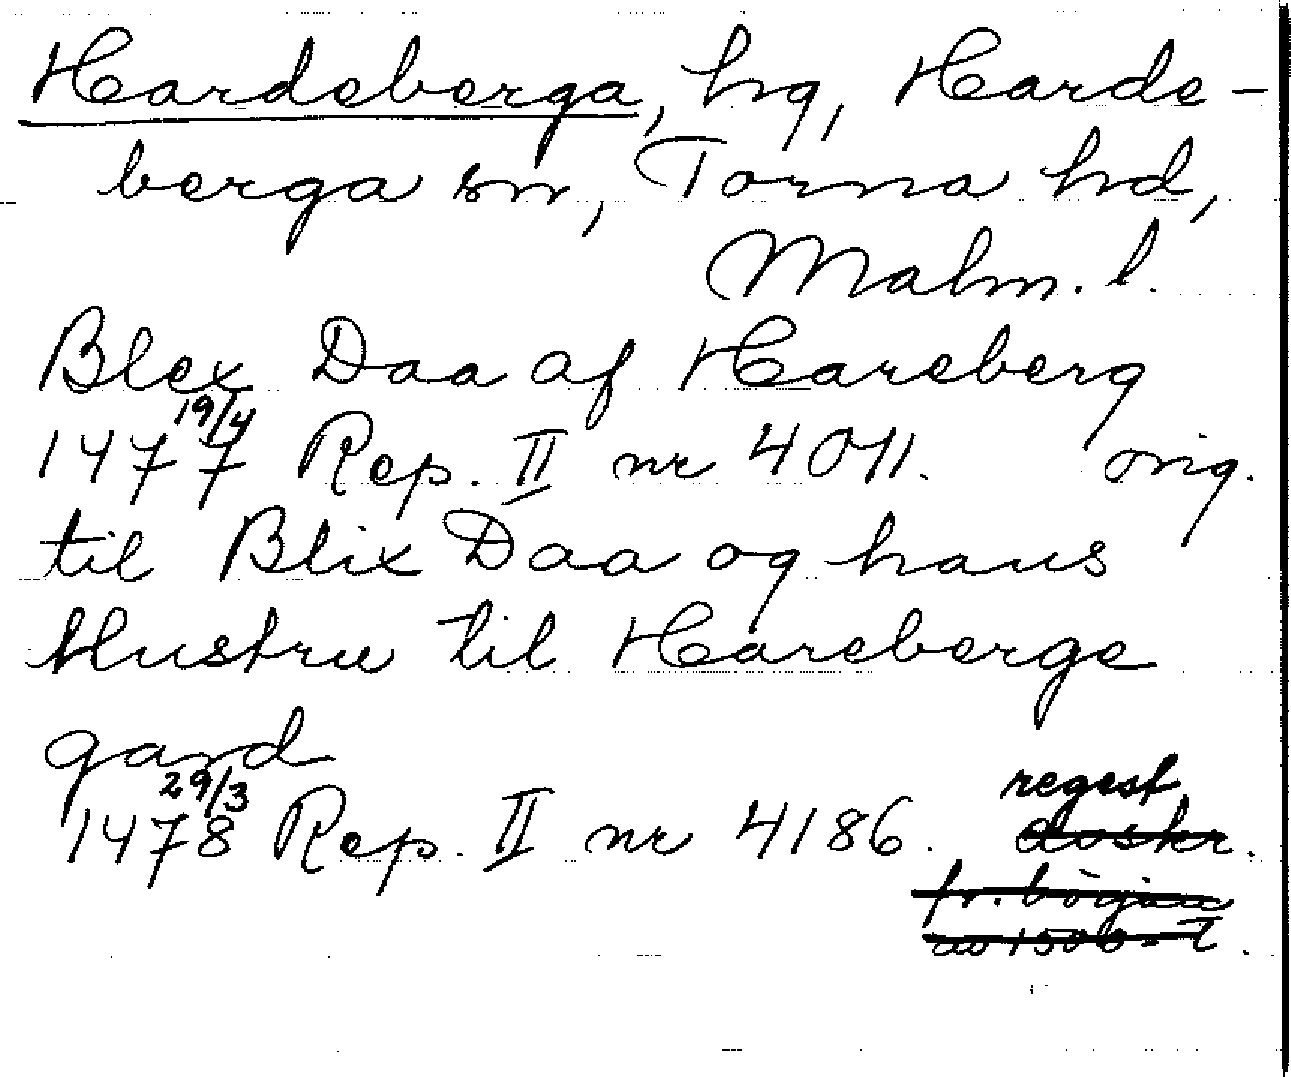 Hardeberga, hg, Harde-
berga sn, Torna hd,
Malm. l.
Blex Daa af Hareberg
19/4
1477 Rep. II nr 4011. orig.
til Blix Daa og hans
Hustru til Hareberge
gard
29/3 regest
1478 Rep. II nr 4186. avskr.
fr. början
av 1500-t.